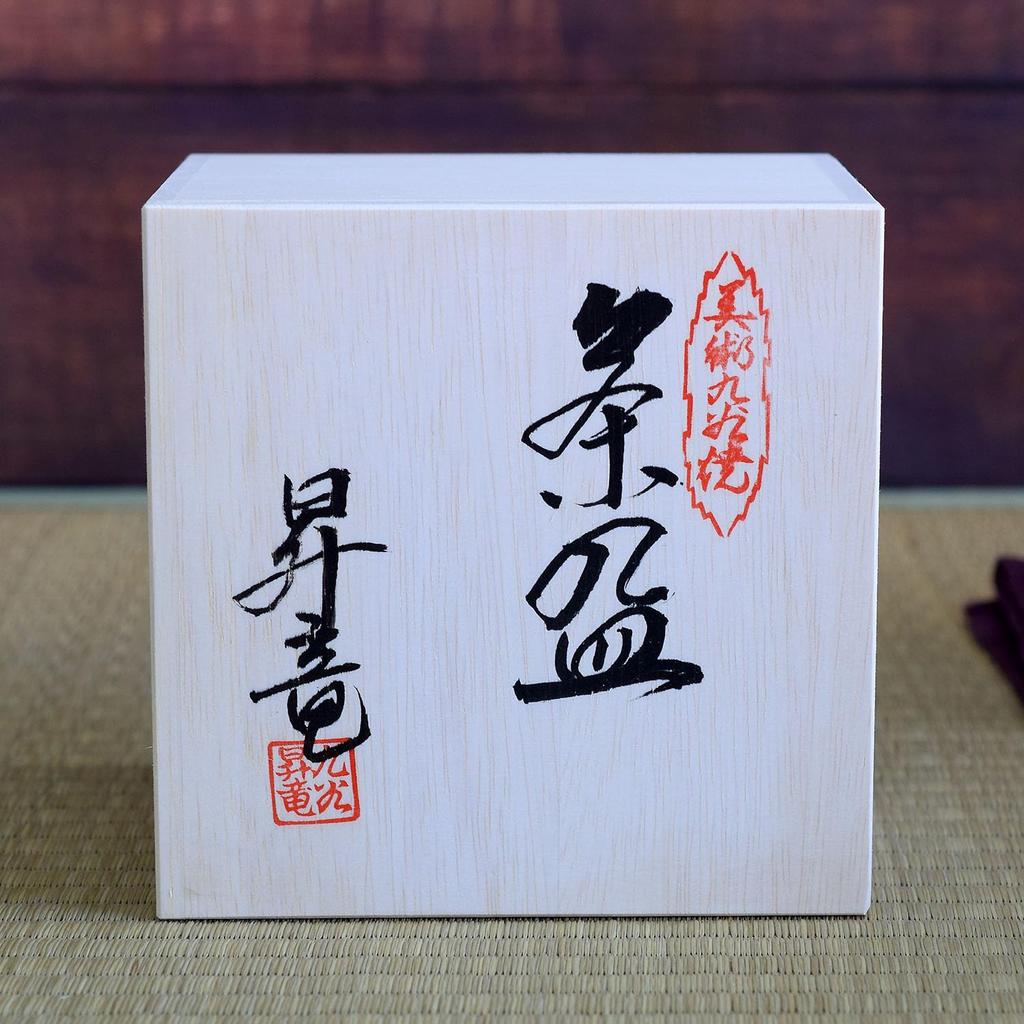 美術九谷焼
茶盌
昇竜
九谷
昇竜